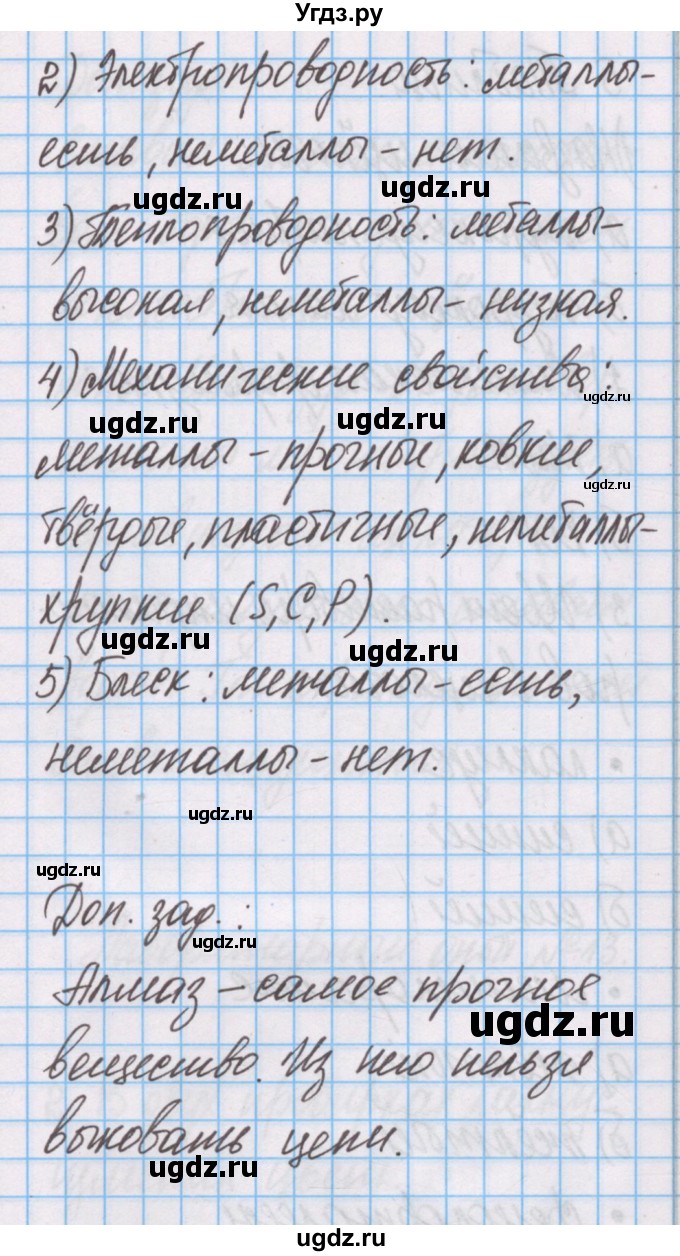 Угдз.ру
2) Электропроводность: металлы-
есть, неметаллы - нет.
ugdz.ru ugdz.ru
3) Теплопроводность: металлы-
высокая, неметаллы - низкая.
4) Механические свойства:
ugdz.ru ugdz.ru ugdz.ru
металлы - прочные, ковкие,
ugdz.ru
твёрдые, пластичные, неметаллы-
хрупкие (S, C, P).
ugdz.ru ugdz.ru
5) Блеск: металлы - есть,
неметаллы - нет.
ugdz.ru
ugdz.ru
Доп. зад.:
ugdz.ru
Алмаз - самое прочное
ugdz.ru
вещество. Из него нельзя
выковать цепи.
ugdz.ru
ugdz.ru ugdz.ru